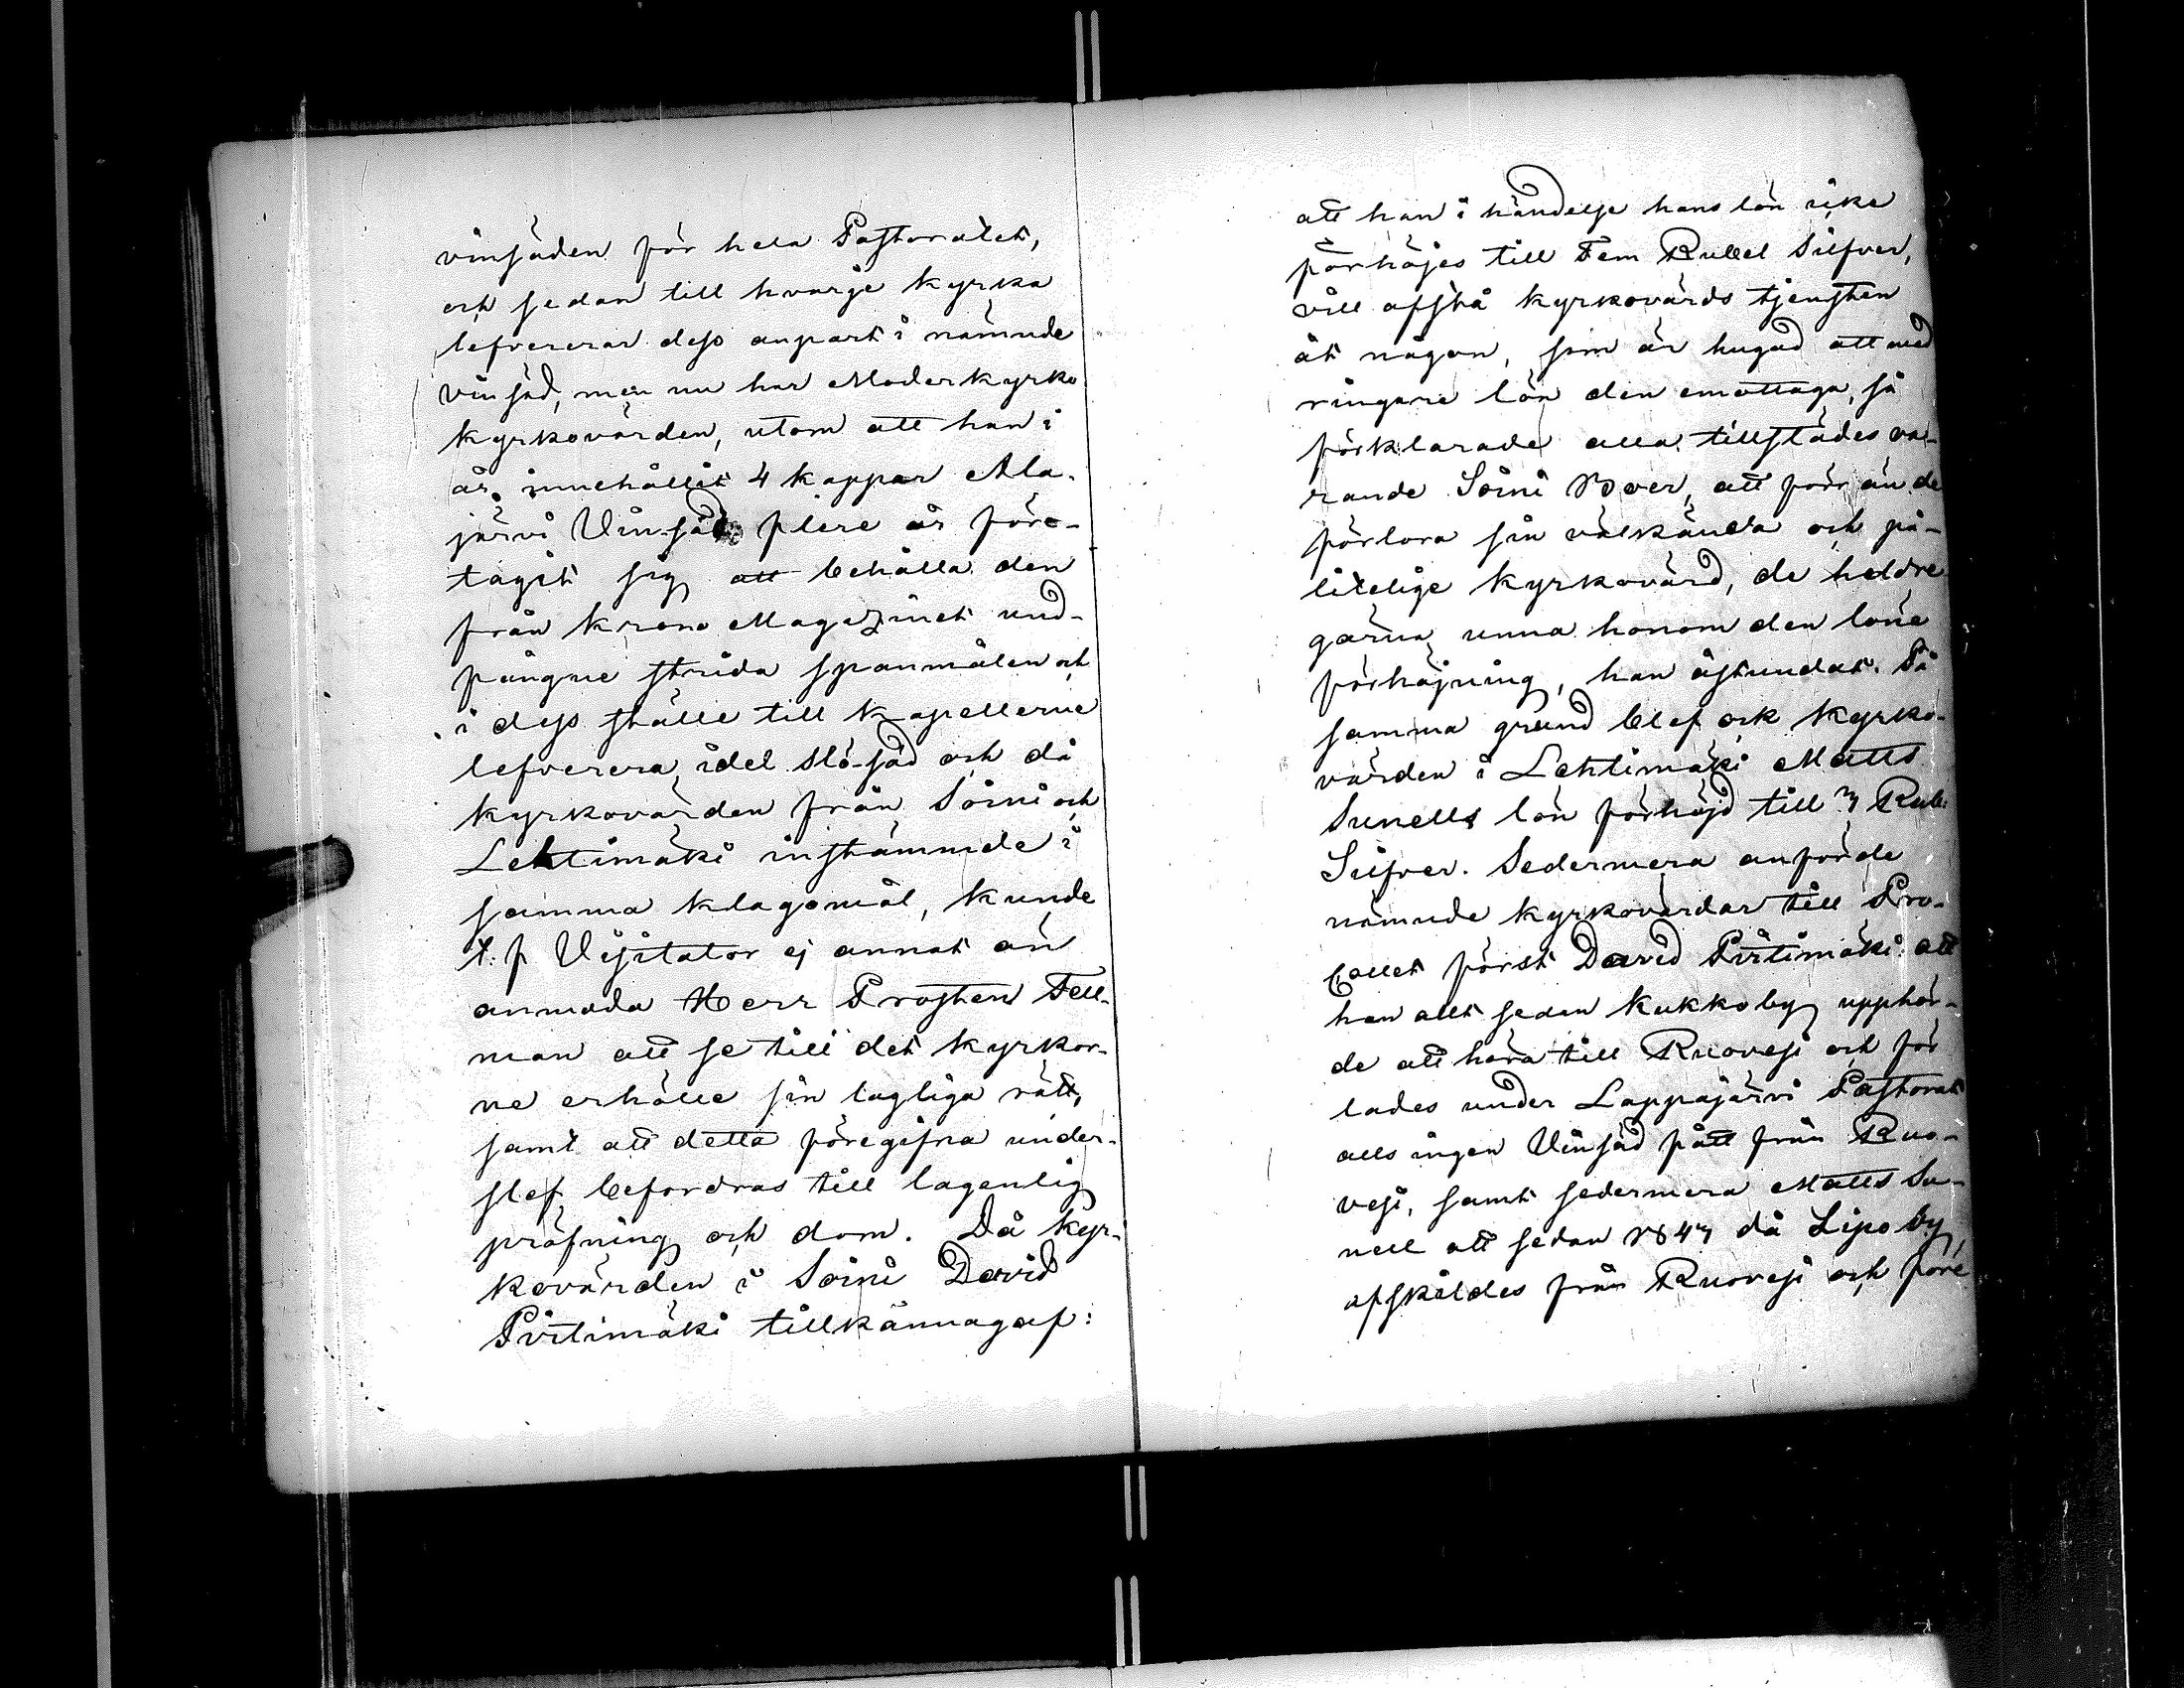 vinsäden för hela Pastoratet,
och sedan till hvarje kyrka
lefvererar dess anpart i nämnde
Vinsäd, men nu har Moderkyrko
kyrkovärden, utom att han i
år innehållit 4 kappar Ala-
järvi Vinsäd flere år före-
tagit sig att behålla den
från krono Magazinet und-
fångne strida spanmålen och
i dess ställe till kapellerne
lefverera idel slö-säd och då
kyrkovärden från Soini och
Lehtimäki instämmde i
samma klagomål, kunde
t. f. Visitator ej annat än
anmoda Herr Prosten Fell-
man att se till det kyrkor-
ne erhålle sin lagliga rätt,
samt att detta föregifna under-
slef befordras till lagenlig
pröfning och dom. Då kyr-
kovärden i Soini David
Pirtimäki tillkännagaf:
att han i händelse hans lön icke
förhöjes till Fem Rubel Silfver,
vill afstå kyrkovärds tjensten
åt någon, som är hugad att med
ringare lön den emottaga, så
förklarade alla tillstädes va-
rande Soini Boer, att förr än de
förlora sin välkända och på-
litelige kyrkovärd, de heldre
gärna unna honom den löne
förhöjning, han åstundat. På
samma grund blef ock kyrko-
värden i Lehtimäki Matts
Sunells lön förhöjd till 3 Rub:
Silfver. Sedermera anförde
nämnde kyrkovärdar till Pro-
collet först David Pirtimäki att
han allt sedan Kukko by upphör-
de att höra till Ruovesi och för
lades under Lappajärvi Pastorat
alls ingen Vinsäd fått från Ruo-
vesi, samt sedermera Matts Su-
nell att sedan 1843 då Lipo by
afskildes från Ruovesi och före